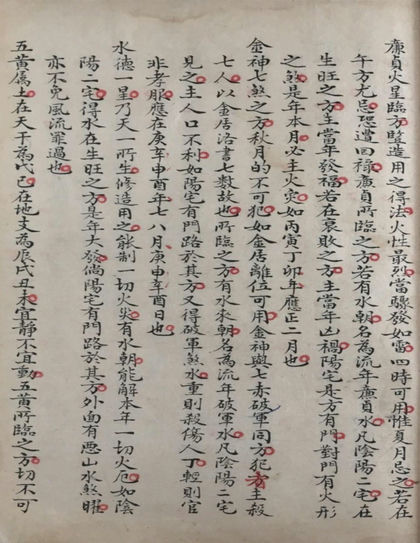 廉貞火星臨方豎造用之得法火性最烈當驟發如雷四時可用惟夏月忌之若在
午方尤忌恐遭回祿廉貞所臨之方若有水朝名為流年廉貞水凡陰陽二宅
生旺之方主當年發福若在衰敗之方主當年凶禍陽宅是方有門對門有火形
之煞是年本月必主火災如丙寅丁卯年應正二月也
金神七煞之方秋月的不可犯如金居離位可用金神與七赤破軍同方犯者主殺
七人以金居洛書七數故也所臨之方有水來朝名為流年破軍水凡陰陽二宅
見之主人口不利如陽宅有門路於其方又得破軍煞水重則殺傷人丁輕則官
非孝服應在庚辛申酉年七八月庚申辛酉日也
水德一星乃天一所生修造用之能制一切火災有水朝能解本年一切火厄如陰
陽二宅得水在生旺之方是年大發倘陽宅有門路於其方外面有惡山水煞曜
亦不免風流罪過也
五黃屬土在天干為戊己在地支為辰戌丑未宜靜不宜動五黃所臨之方切不可